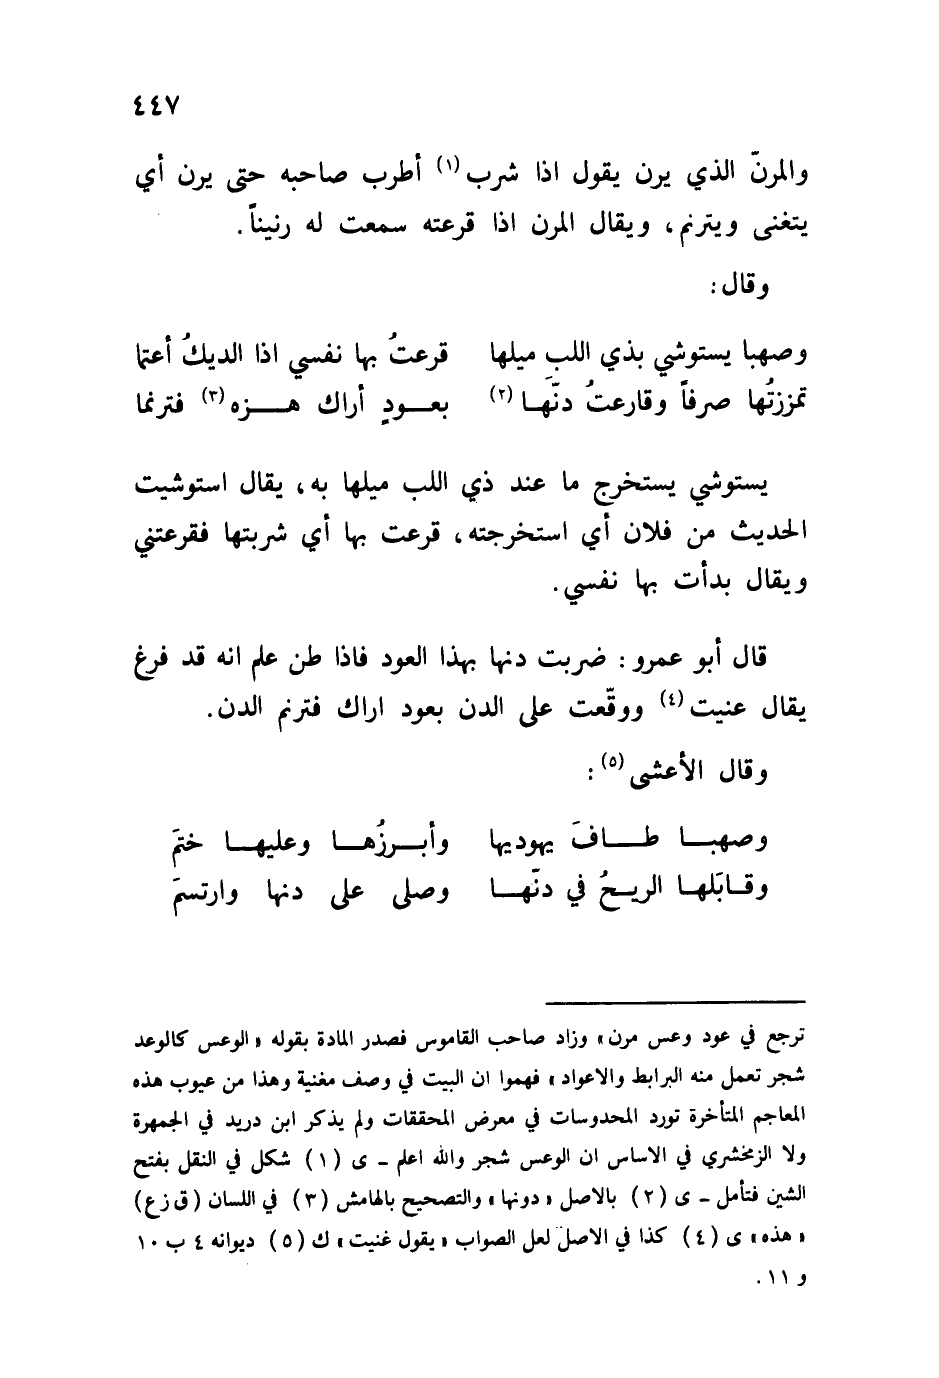 ٤٤٧
والمرنّ الذي يرن يقول اذا شرب (١) أطرب صاحبه حتى يرن أي
يتغنى ويترنم، ويقال المرن اذا قرعته سمعت له رنيناً.
وقال:
وصهبا يستوشي بذي اللب ميلها    قرعتُ بها نفسي اذا الديكُ أعتما
تمززتُها صرفاً وقارعتُ دنّهَا (٢)    بعودِ أراك هزه (٣) فترنما
يستوشي يستخرج ما عند ذي اللب ميلها به، يقال استوشيت
الحديث من فلان أي استخرجته، قرعت بها أي شربتها فقرعتني
ويقال بدأت بها نفسي.
قال أبو عمرو: ضربت دنها بهذا العود فاذا طن علم انه قد فرغ
يقال عنيت (٤) ووقّعت على الدن بعود اراك فترنم الدن.
وقال الأعشى (٥):
وصهبا طافَ يهوديها    وأبرزُها وعليها ختمَ
وقابَلها الريحُ في دنّها    وصلى على دنها وارتسمَ
ترجع في عود وعس مرن» وزاد صاحب القاموس فصدر المادة بقوله «الوعس كالوعد
شجر تعمل منه البرابط والاعواد» فهموا ان البيت في وصف مغنية وهذا من عيوب هذه
المعاجم المتأخرة تورد المحدوسات في معرض المحققات ولم يذكر ابن دريد في الجمهرة
ولا الزمخشري في الاساس ان الوعس شجر والله اعلم – ى (١) شكل في النقل بفتح
الشين فتأمل – ى (٢) بالاصل «دونها» والتصحيح بالهامش (٣) في اللسان (ق ز ع)
«هذه» ى (٤) كذا في الاصل لعل الصواب «يقول غنيت» ك (٥) ديوانه ٤ ب ١٠
و ١١.